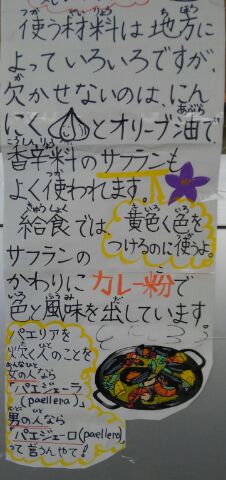 使う材料は地方に
よっていろいろですが、
欠かせないのは、にん
にくとオリーブ油で、
香辛料のサフランも
よく使われます。
黄色く色を
つけるのに使うよ。
給食では、
サフランの
かわりにカレー粉で
色と風味を出しています。
パエリアを
炊く人のことを
女の人なら
「パエジェーラ
(paellera)」
男の人なら
「パエジェーロ(paellero)」
って言うんやで!